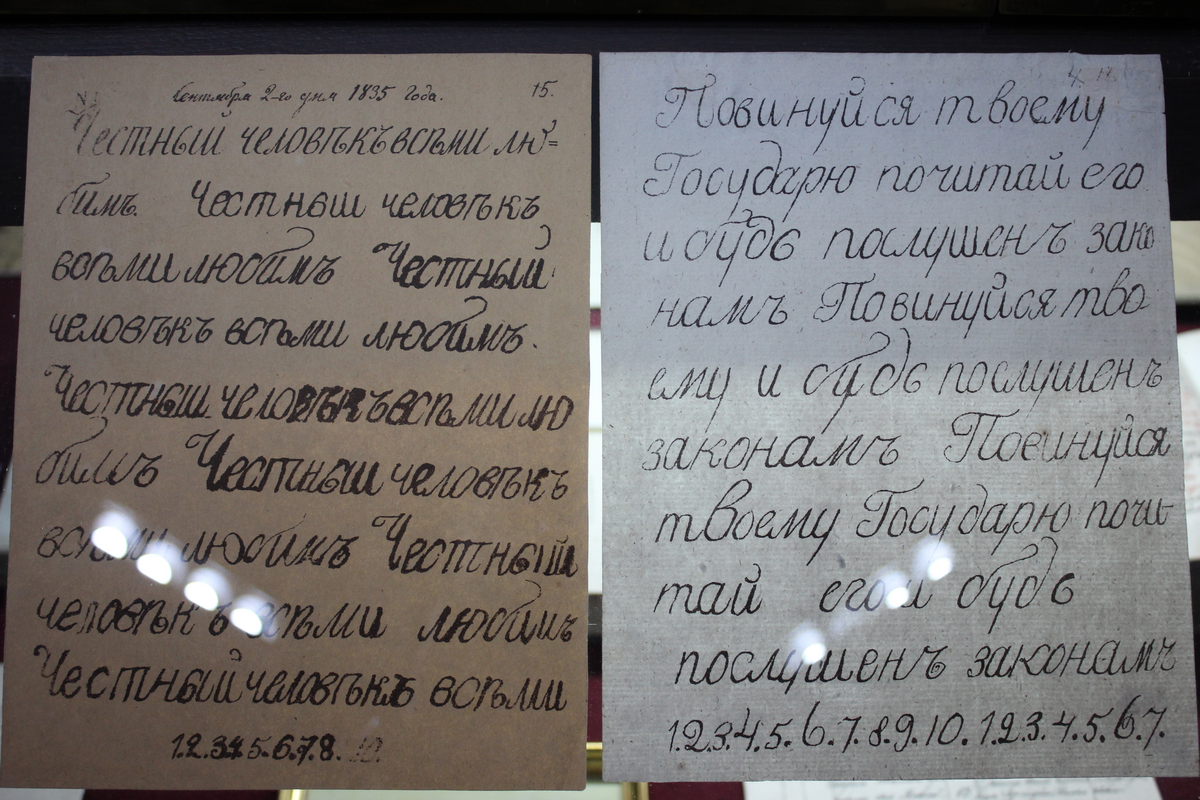 Сентября 2-го дня 1835 года. 15.
Честный человѣкъ всѣми лю=
бимъ. Честный человѣкъ
всѣми любимъ Честный
человѣкъ всѣми любимъ.
Честный человѣкъ всѣми лю
бимъ Честный человѣкъ
всѣми любимъ Честный
человѣкъ всѣми любимъ
Честный человѣкъ всѣми
1.2.3.4.5.6.7.8.
Повинуйся твоему
Государю почитай его
и будь послушенъ зако
намъ Повинуйся тво
ему и будь послушенъ
законамъ Повинуйся
твоему Государю почи-
тай его и будь
послушенъ законамъ
1.2.3.4.5.6.7.8.9.10.1.2.3.4.5.6.7.